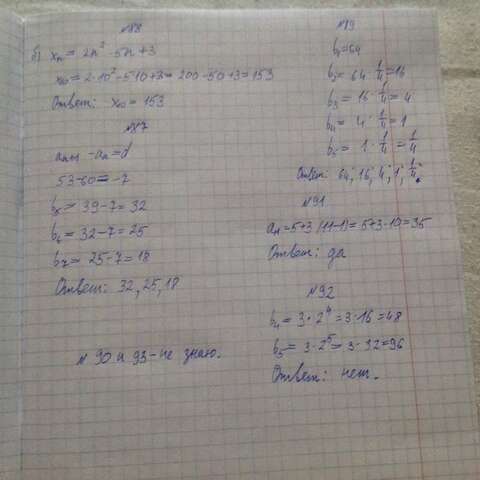 №88
б) xₙ = 2n² - 5n + 3
x₁₀ = 2·10² - 5·10 + 3 = 200 - 50 + 3 = 153
Ответ: x₁₀ = 153
№87
aₙ₊₁ - aₙ = d
53 - 60 = -7
b₅ = 39 - 7 = 32
b₆ = 32 - 7 = 25
b₇ = 25 - 7 = 18
Ответ: 32, 25, 18
№ 90 и 93 - не знаю.
№89
b₁ = 64
b₂ = 64 · 1/4 = 16
b₃ = 16 · 1/4 = 4
b₄ = 4 · 1/4 = 1
b₅ = 1 · 1/4 = 1/4
Ответ: 64; 16; 4; 1; 1/4.
№91
aₙ = 5 + 3 (11 - 1) = 5 + 3 · 10 = 35
Ответ: да
№92
b₄ = 3 · 2⁴ = 3 · 16 = 48
b₅ = 3 · 2⁵ = 3 · 32 = 96
Ответ: нет.